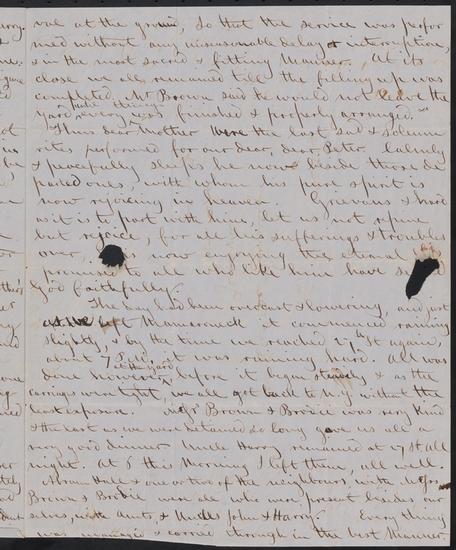 val at the ground, so that the service was perfor
med without any unseasonable delay or interruption,
& in the most sacred & fitting manner. At its
close we all remained till the filling up was
completed. Mr Brown said he would not leave the
yard, every was finished & properly arranged.
Thus dear Mother were the last sad & solemn
rites performed for our dear, dear Peter. Calmly
& peacefully sleeps he now beside those de
parted ones, with whom his pure spirit is
now rejoicing in heaven. Grievous & hard
as it is to part with him, let us not repine
but rejoice, for all his sufferings & troubles
over, now enjoying the eternal
promised to all who like him have
God faithfully.
The day had been overcast & lowring, and just
as we left Mamaroneck it commenced raining
slightly, & by the time we reached 17th St again,
about 7 P.M. it was raining hard. All was
done at the yard before it began steadily & as the
carriages were tight, we all got back to N.Y. without the
least exposure. Mr Brown & Brodie was very kind
& the last as we were detained so long gave us all a
very good dinner. Uncle Harry remained at 17 St all
night. At 6 this morning I left them, all well.
Hall & one or two of the neighbours, with Mr
Brown & Brodie were all who were present besides our
selves, with Aunt, & Uncles John & Harry. Every thing
was managed & carried through in the best manner